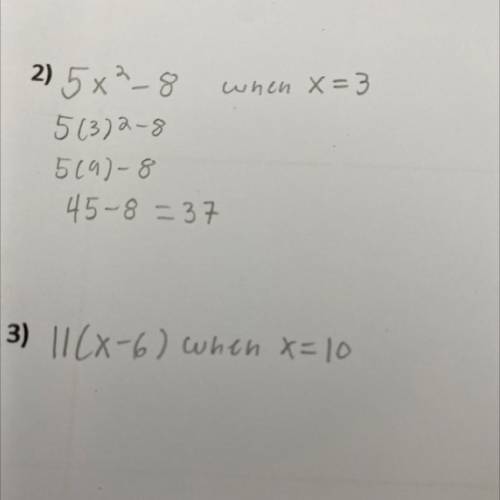 2) 5x² - 8 when x = 3
5(3)² - 8
5(9) - 8
45 - 8 = 37
3) 11(x - 6) when x = 10